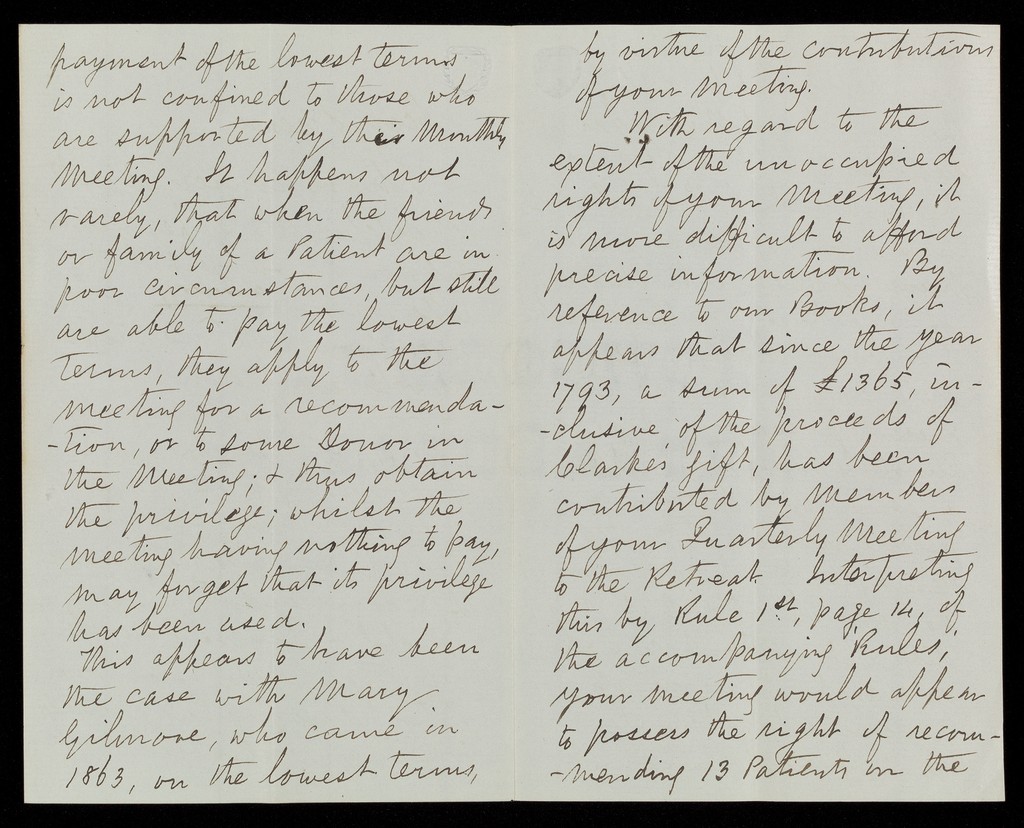 payment of the lowest terms
is not confined to those who
are supported by their Monthly
Meeting. It happens not
rarely, that when the friends
or family of a Patient are in
poor circumstances, but still
are able to pay the lowest
terms, they apply to the
meeting for a recommenda-
-tion, or to some Donor in
the Meeting; & thus obtain
the privilege; whilst the
meeting having nothing to pay,
may forget that its privilege
has been used.
This appears to have been
the case with Mary
Gilmore, who came in
1863, on the lowest terms,
by virtue of the contributions
of your Meeting.
With regard to the
extent of the unoccupied
rights of your Meeting, it
is more difficult to afford
precise information. By
reference to our Books, it
appears that since the year
1793, a sum of £1365, in-
-clusive, of the proceeds of
Clarke's gift, has been
contributed by Members
of your Quarterly Meeting
to the Retreat. Interpreting
this by Rule 1st, page 14, of
the accompanying 'Rules',
your meeting would appear
to possess the right of recom-
-mending 13 Patients on the